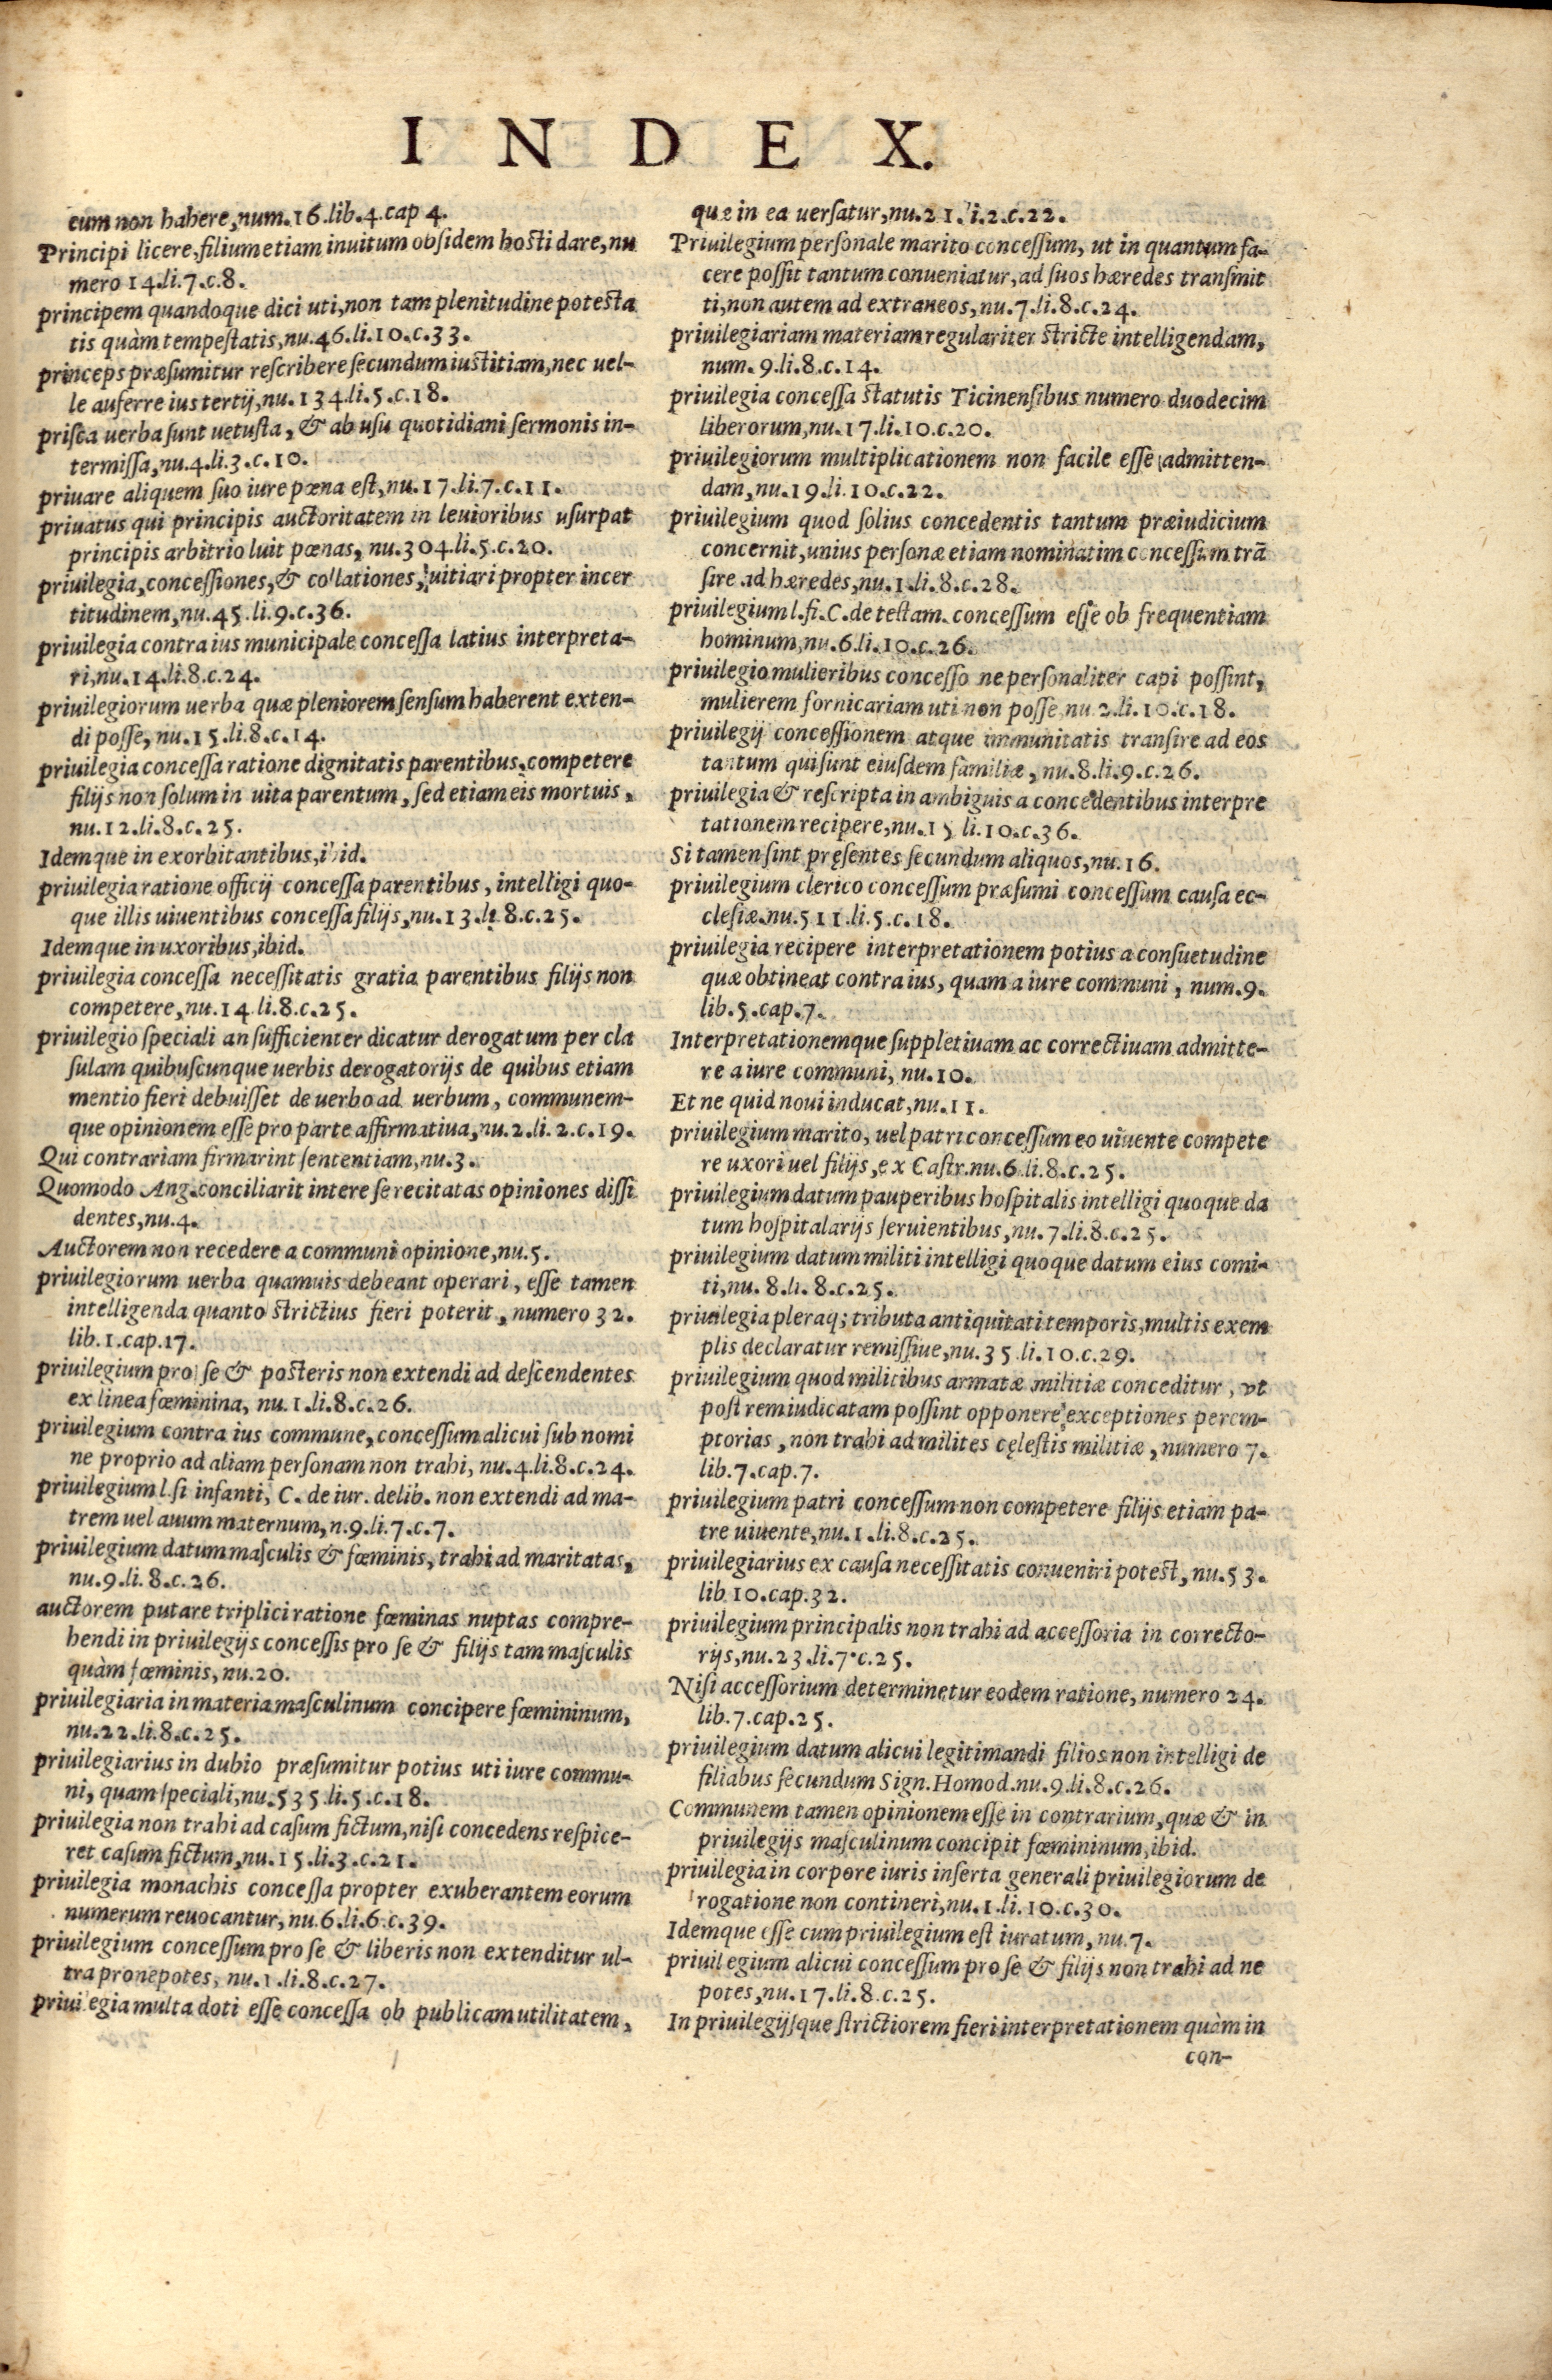 INDEX.
cum non habere, num.16.lib.4.cap 4.
Principi licere, filium etiam inuitum obsidem hosti dare, nu
mero 14.li.7.c.8.
principem quandoque dici uti, non tam plenitudine potesta
tis quàm tempestatis, nu.46.li.10.c.33.
princeps præsumitur rescribere secundum iustitiam, nec uel-
le auferre ius tertij, nu.134.li.5.c.18.
prisca uerba sunt uetusta, & ab usu quotidiani sermonis in-
termissa, nu.4.li.3.c.10.
priuare aliquem suo iure pœna est, nu.17.li.7.c.11.
priuatus qui principis auctoritatem in leuioribus usurpat
principis arbitrio luit pœnas, nu.304.li.5.c.20.
priuilegia, concessiones, & collationes, uitiari propter incer
titudinem, nu.45.li.9.c.36.
priuilegia contra ius municipale concessa latius interpreta-
ri, nu.14.li.8.c.24.
priuilegiorum uerba quæ pleniorem sensum haberent exten-
di posse, nu.15.li.8.c.14.
priuilegia concessa ratione dignitatis parentibus, competere
filijs non solum in uita parentum, sed etiam eis mortuis,
nu.12.li.8.c.25.
Idemque in exorbitantibus, ibid.
priuilegia ratione officij concessa parentibus, intelligi quo-
que illis uiuentibus concessa filijs, nu.13.li.8.c.25.
Idemque in uxoribus, ibid.
priuilegia concessa necessitatis gratia parentibus filijs non
competere, nu.14.li.8.c.25.
priuilegio speciali an sufficienter dicatur derogatum per cla
sulam quibuscunque uerbis derogatorijs de quibus etiam
mentio fieri debuisset de uerbo ad uerbum, communem-
que opinionem esse pro parte affirmatiua, nu.2.li.2.c.19.
Qui contrariam firmarint sententiam, nu.3.
Quomodo Ang. conciliarit inter e se recitatas opiniones dissi
dentes, nu.4.
Auctorem non recedere a communi opinione, nu.5.
priuilegiorum uerba quamuis debeant operari, esse tamen
intelligenda quanto strictius fieri poterit, numero 32.
lib.1.cap.17.
priuilegium pro se & posteris non extendi ad descendentes
ex linea fœminina, nu.1.li.8.c.26.
priuilegium contra ius commune, concessum alicui sub nomi
ne proprio ad aliam personam non trahi, nu.4.li.8.c.24.
priuilegium l.si infanti, C. de iur. delib. non extendi ad ma-
trem uel auum maternum, n.9.li.7.c.7.
priuilegium datum masculis & fœminis, trahi ad maritatas,
nu.9.li.8.c.26.
auctorem putare triplici ratione fœminas nuptas compre-
hendi in priuilegijs concessis pro se & filijs tam masculis
quàm fœminis, nu.20.
priuilegiaria in materia masculinum concipere fœmininum,
nu.22.li.8.c.25.
priuilegiarius in dubio præsumitur potius uti iure commu-
ni, quam speciali, nu.535.li.5.c.18.
priuilegia non trahi ad casum fictum, nisi concedens respice-
ret casum fictum, nu.15.li.3.c.21.
priuilegia monachis concessa propter exuberantem eorum
numerum reuocantur, nu.6.li.6.c.39.
priuilegium concessum pro se & liberis non extenditur ul-
tra pronepotes, nu.1.li.8.c.27.
priuilegia multa doti esse concessa ob publicam utilitatem,
quæ in ea uersatur, nu.21.li.2.c.22.
Priuilegium personale marito concessum, ut in quantum fa-
cere possit tantum conueniatur, ad suos hæredes transmit
ti, non autem ad extraneos, nu.7.li.8.c.24.
priuilegiariam materiam regulariter stricte intelligendam,
num.9.li.8.c.14.
priuilegia concessa statutis Ticinensibus numero duodecim
liberorum, nu.17.li.10.c.20.
priuilegiorum multiplicationem non facile esse admitten-
dam, nu.19.li.10.c.22.
priuilegium quod solius concedentis tantum præiudicium
concernit, unius personæ etiam nominatim concessum trã
sire ad hæredes, nu.1.li.8.c.28.
priuilegium l.fi.C.de testam. concessum esse ob frequentiam
hominum, nu.6.li.10.c.26.
priuilegio mulieribus concesso ne personaliter capi possint,
mulierem fornicariam uti non posse nu.2.li.10.c.18.
priuilegij concessionem atque immunitatis transire ad eos
tantum qui sunt eiusdem familiæ, nu.8.li.9.c.26.
priuilegia & rescripta in ambiguis a concedentibus interpre
tationem recipere, nu.15 li.10.c.36.
Si tamen sint pręsentes secundum aliquos, nu.16.
priuilegium clerico concessum præsumi concessum causa ec-
clesiæ.nu.511.li.5.c.18.
priuilegia recipere interpretationem potius a consuetudine
quæ obtineat contra ius, quam a iure communi, num.9.
lib.5.cap.7.
Interpretationemque suppletiuam ac correctiuam admitte-
re a iure communi, nu.10.
Et ne quid noui inducat, nu.11.
priuilegium marito, uel patri concessum eo uiuente compete
re uxori uel filijs, ex Castr.nu.6.li.8.c.25.
priuilegium datum pauperibus hospitalis intelligi quoque da
tum hospitalarijs seruientibus, nu.7.li.8.c.25.
priuilegium datum militi intelligi quoque datum eius comi-
ti, nu.8.li.8.c.25.
priuilegia pleraq; tributa antiquitati temporis, multis exem
plis declaratur remissiue, nu.35 li.10.c.29.
priuilegium quod militibus armatæ militiæ conceditur, ut
post rem iudicatam possint opponere exceptiones perem-
ptorias, non trahi ad milites cęlestis militiæ, numero 7.
lib.7.cap.7.
priuilegium patri concessum non competere filijs etiam pa-
tre uiuente, nu.1.li.8.c.25.
priuilegiarius ex causa necessitatis conueniri potest, nu.53.
lib 10.cap.32.
priuilegium principalis non trahi ad accessoria in correcto-
rijs, nu.23.li.7.c.25.
Nisi accessorium determinetur eodem ratione, numero 24.
lib.7.cap.25.
priuilegium datum alicui legitimandi filios non intelligi de
filiabus secundum Sign.Homod.nu.9.li.8.c.26.
Communem tamen opinionem esse in contrarium, quæ & in
priuilegijs masculinum concipit fœmininum, ibid.
priuilegia in corpore iuris inserta generali priuilegiorum de
rogatione non contineri, nu.1.li.10.c.30.
Idemque esse cum priuilegium est iuratum, nu.7.
priuilegium alicui concessum pro se & filijs non trahi ad ne
potes, nu.17.li.8.c.25.
In priuilegijsque strictiorem fieri interpretationem quàm in
con-